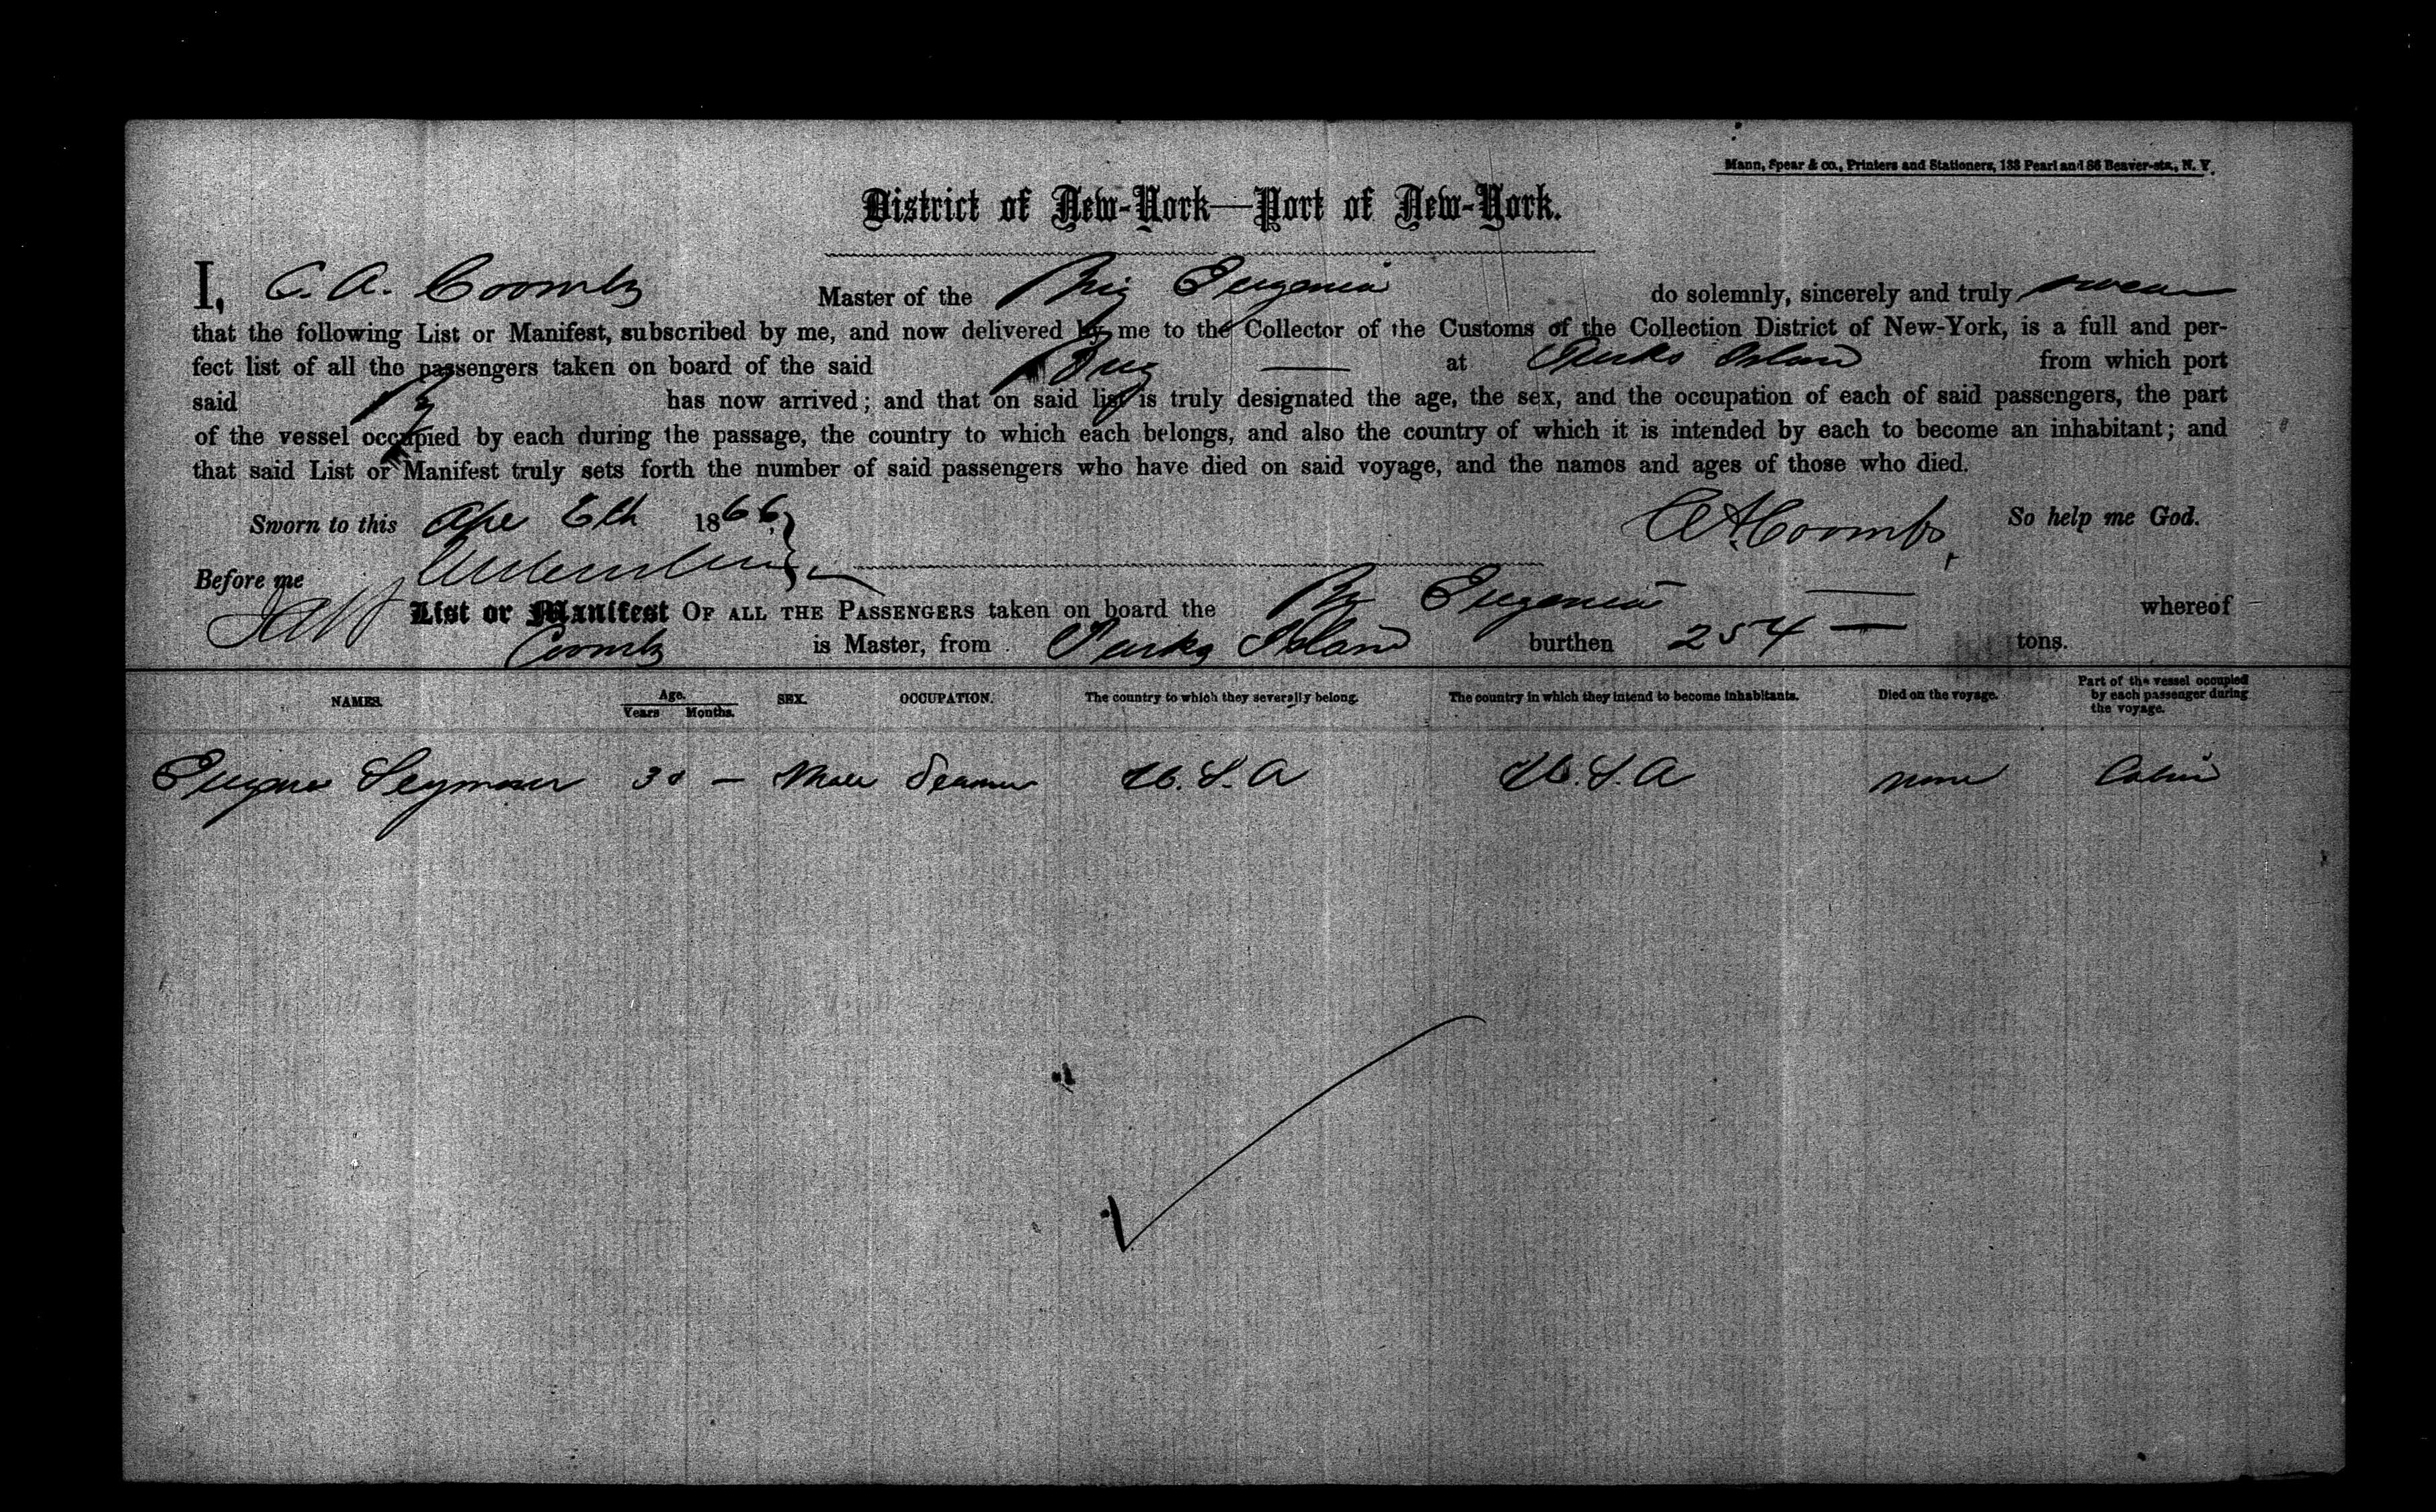 Mann, Spear & co., Printers and Stationers, 133 Pearl and 86 Beaver-sts., N. Y.
District of New-York—Port of New-York.
I, C. A. Coombs Master of the Brig Eugenia do solemnly, sincerely and truly swear
that the following List or Manifest, subscribed by me, and now delivered by me to the Collector of the Customs of the Collection District of New-York, is a full and per-
fect list of all the passengers taken on board of the said Brig at Turks Island from which port
said has now arrived; and that on said list is truly designated the age, the sex, and the occupation of each of said passengers, the part
of the vessel occupied by each during the passage, the country to which each belongs, and also the country of which it is intended by each to become an inhabitant; and
that said List or Manifest truly sets forth the number of said passengers who have died on said voyage, and the names and ages of those who died.
Sworn to this Apl 6th 1866, C A Coombs, So help me God.
Before me
List or Manifest OF ALL THE PASSENGERS taken on board the Bg Eugenia — whereof
Coombs is Master, from Turks Island burthen 254 — tons.
NAMES. Age. Years Months. SEX. OCCUPATION. The country to which they severally belong. The country in which they intend to become inhabitants. Died on the voyage. Part of the vessel occupied by each passenger during the voyage.
Eugene Seymour 30 — Male Seaman U. S. A U. S. A none Cabin